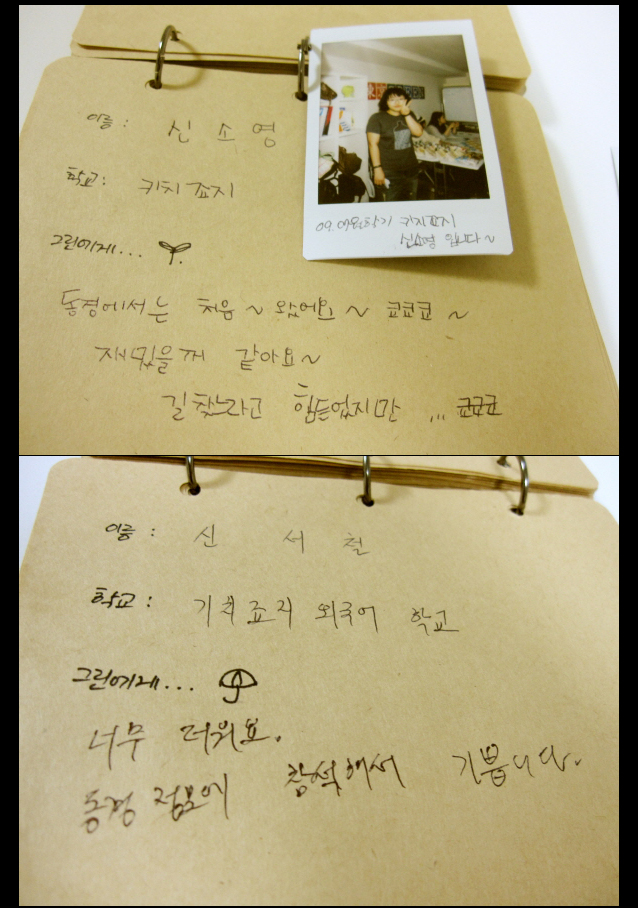 이름 : 신 소 영
학교 : 키치죠지
09. 여름학기 키치죠지
신소영 입니다~
그린에게...
동경에서는 처음~ 왔어요~ 쿄쿄쿄~
재밌을꺼 같아요~
길 찾느라고 힘들었지만 ... 쿄쿄쿄
이름 : 신 서 철
학교 : 기치죠지 외국어 학교
그린에게...
너무 더워요.
동경 점모에 참석해서 기쁩니다.